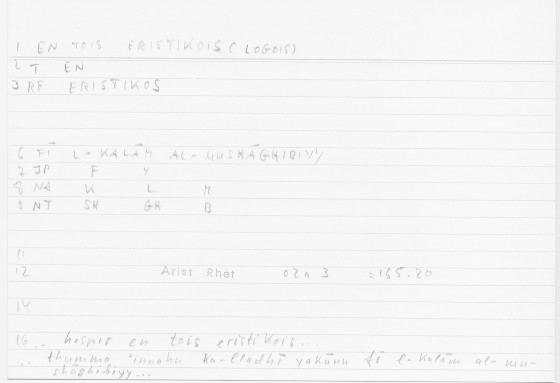 1 EN TOIS ERISTIKOIS (LOGOIS)
2 T EN
3 RF ERISTIKOS
6 FĪ L-KALĀM AL-MUSHĀGHIBIYY
7 JP F Y
8 NA K L M
9 NT SH GH B
11
12 Arist Rhet 02a 3 :165.20
14
16 .. hosper en tois eristikois...
.. thumma 'innahu ka-lladhī yakūnu fī l-kalām al-mu-
shāghibiyy...